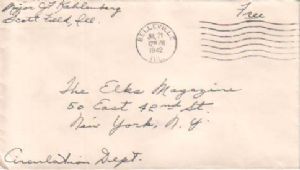 Major J J Kahlenberg
Scott Field, Ill.
Free
BELLEVILLE
JUL 21
1942
ILL.
The Elks Magazine
50 East 42nd St.
New York, N.Y.
Circulation Dept.